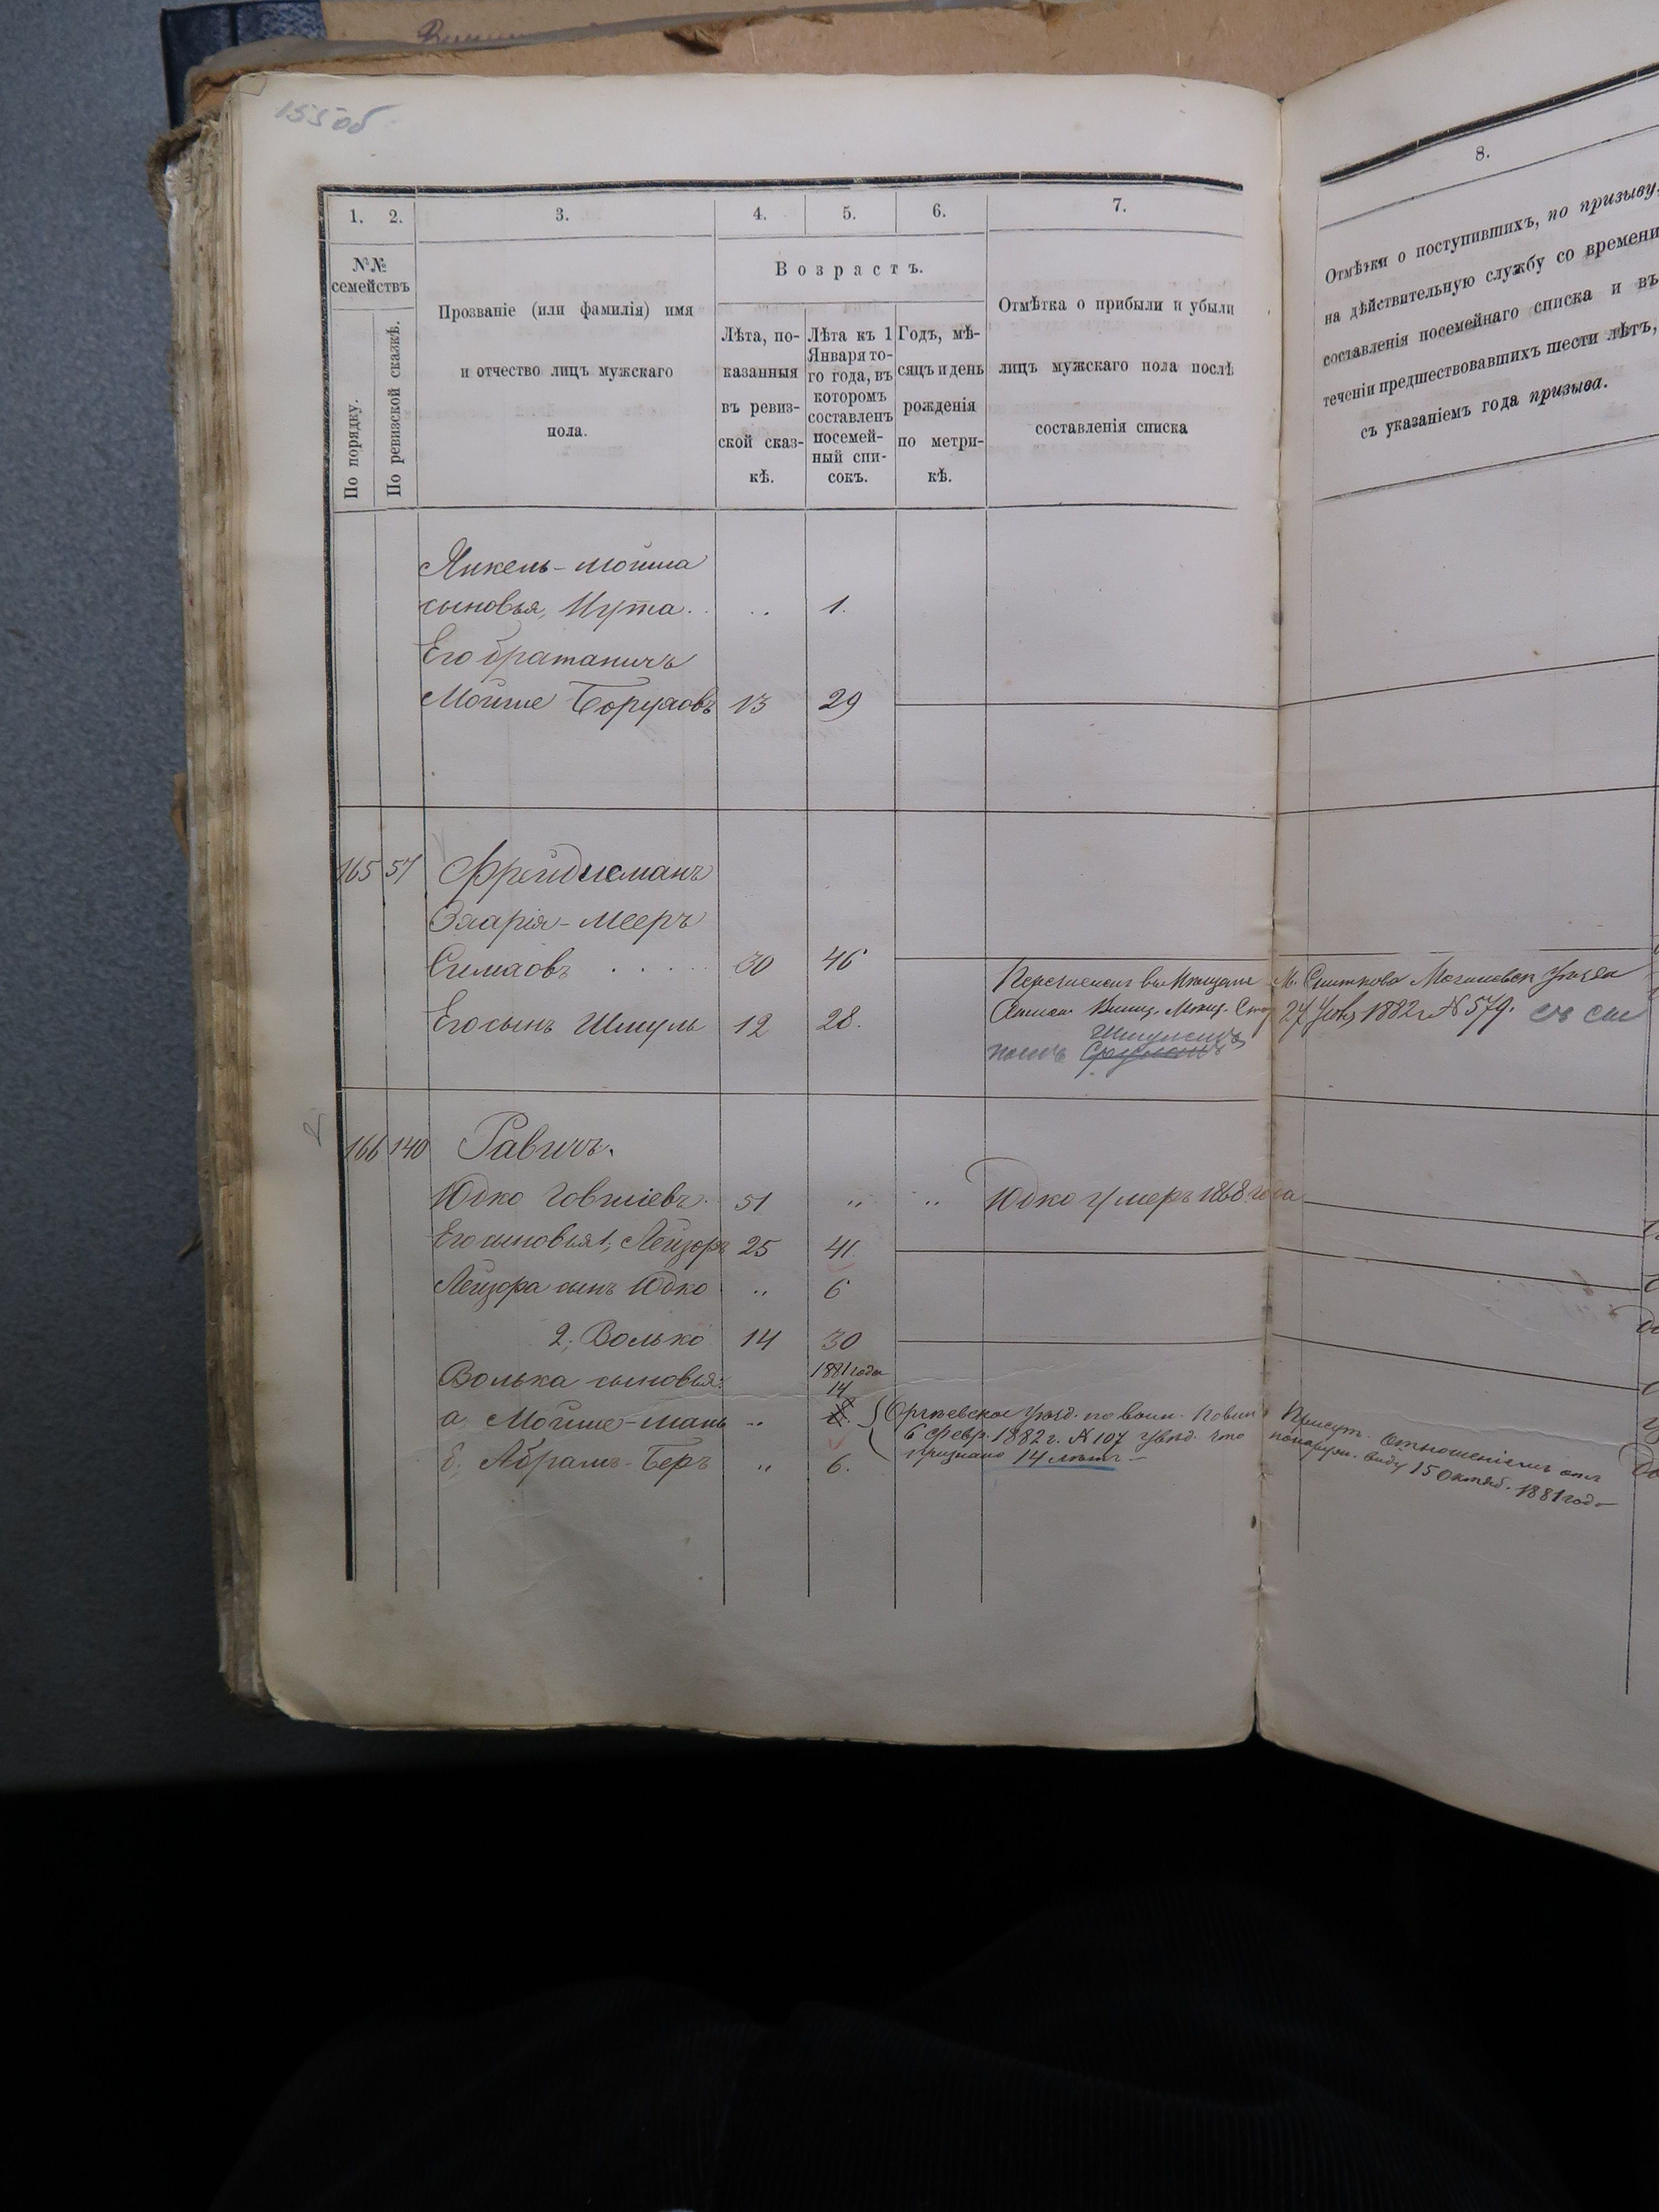 155 об
1. 2. 3. 4. 5. 6. 7.
№№ семействъ
По порядку.
По ревизской сказкѣ.
Прозваніе (или фамилія) имя
и отчество лицъ мужскаго
пола.
Возрастъ.
Лѣта, по-
казанныя
въ ревиз-
ской сказ-
кѣ.
Лѣта къ 1
Января то-
го года, въ
которомъ
составленъ
посемей-
ный спи-
сокъ.
Годъ, мѣ-
сяцъ и день
рожденія
по метри-
кѣ.
Отмѣтка о прибыли и убыли
лицъ мужскаго пола послѣ
составленія списка
8.
Отмѣтки о поступившихъ, по призыву,
на дѣйствительную службу со времени
составленія посемейнаго списка и въ
теченіи предшествовавшихъ шести лѣтъ,
съ указаніемъ года призыва.
Янкель-Мойша
сыновья, Нута .. 1.
Его братаничъ
Мойше Боруховъ 13 29
165 57 Фрейдисманъ
Зхарія-Мееръ
Симховъ 30 46
Перечислен въ мещане М. Сниткова Могилевск уѣзда
Его сынъ Шмуль 12 28.
27 1882 г № 579.
166 140 Равичъ.
Юдко Іовшіевъ 51 " " Юдко умеръ 1868 года
Его сыновья 1, Лейзоръ 25 41
Лейзора сынъ Юдко " 6
2, Волько 14 30
Волька сыновья: 1881 года
14
а, Мойше-Мань "
Оргѣевское уѣзд. по воин. повин Присут. отношеніемъ отъ
6 февр. 1882 г. № 107 увѣд. что 15 Октяб. 1881 года
б, Абрамъ-Беръ " 6. признано 14 лѣтъ